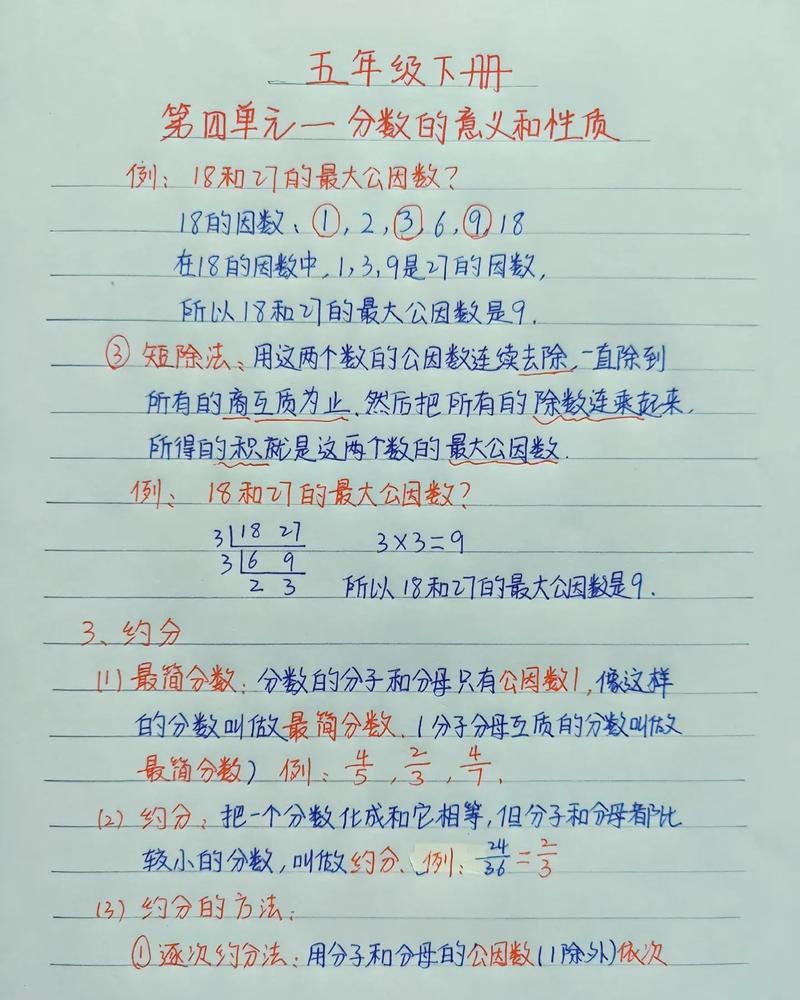 五年级下册
第四单元—分数的意义和性质
例：18和27的最大公因数？
18的因数：①，2，③，6，⑨，18
在18的因数中，1，3，9是27的因数，
所以18和27的最大公因数是9．
③ 短除法：用这两个数的公因数连续去除，一直除到
所有的商互质为止．然后把所有的除数连乘起来，
所得的积就是这两个数的最大公因数．
例：18和27的最大公因数？
3 18 27
3×3=9
3 6 9
2 3
所以18和27的最大公因数是9．
3、约分
(1) 最简分数：分数的分子和分母只有公因数1，像这样
的分数叫做最简分数．(分子分母互质的分数叫做
最简分数) 例：4/5，2/3，4/7．
(2) 约分：把一个分数化成和它相等，但分子和分母都比
较小的分数，叫做约分．例：24/36=2/3
(3) 约分的方法：
①逐次约分法：用分子和分母的公因数(1除外)依次